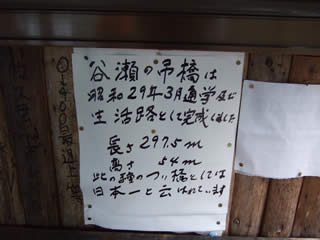 谷瀬の吊橋は
昭和29年3月通学及び
生活路として完成しました
長さ297.5m
高さ54m
此の種のつり橋としては
日本一と云はれています